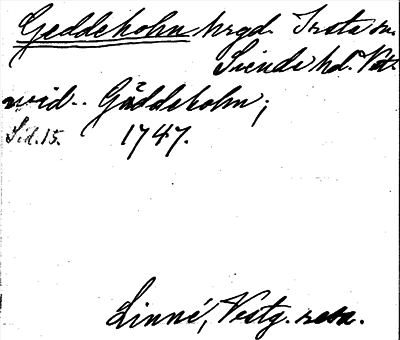 Geddeholm hrgd. Irsta sn.
Siende hd. Vstm.
vid.. Gäddeholm;
Sid. 15. 1747.
Linné, Vestg. resa.